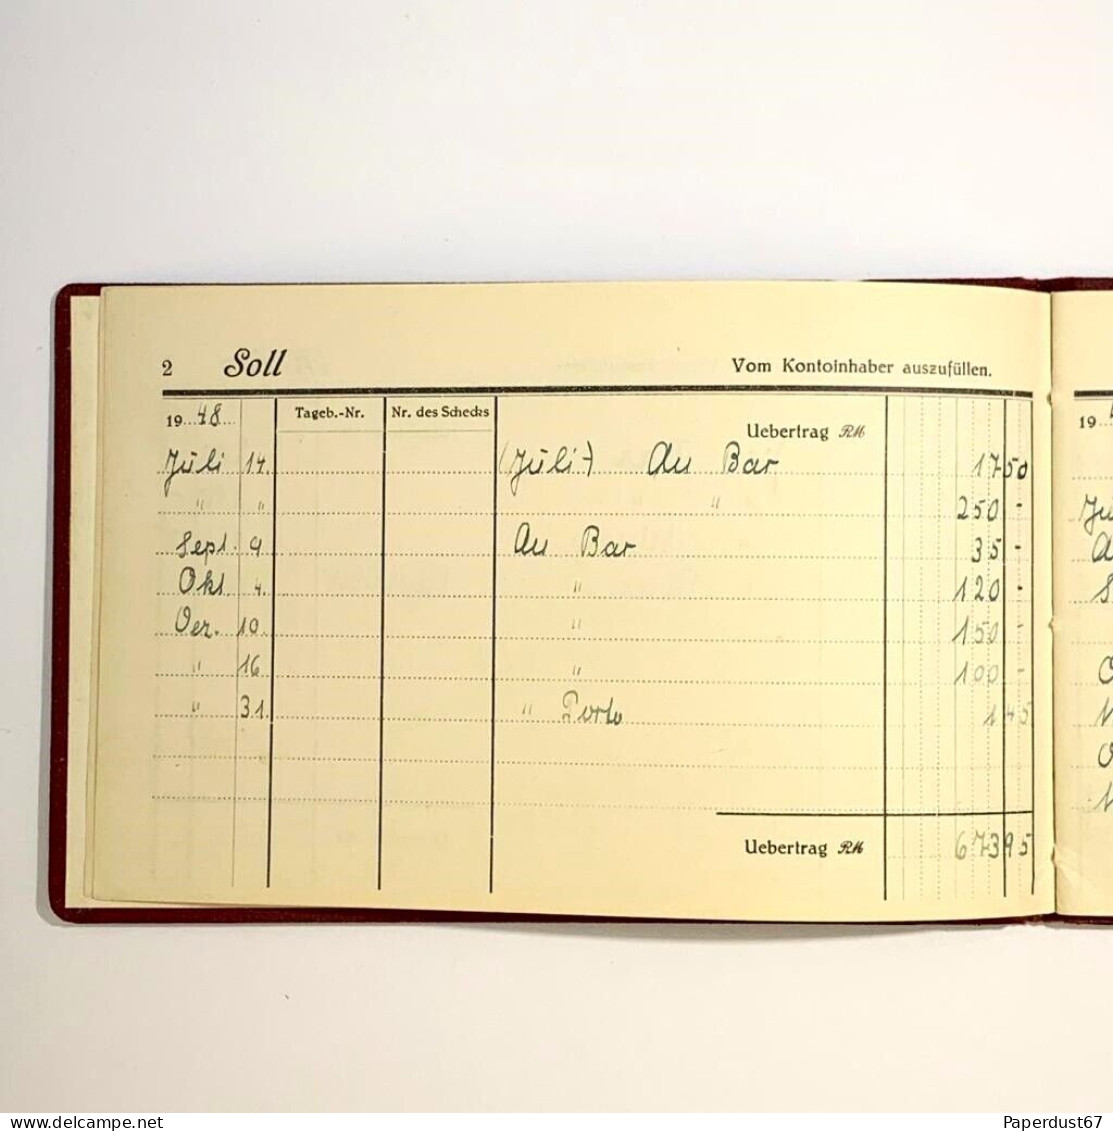 2 Soll Vom Kontoinhaber auszufüllen.
1948 Tageb.-Nr. Nr. des Schecks Uebertrag RM 19
Juli 14. (Juli) An Bar 17 50
" " " 250 -
Sept. 9 An Bar 35 -
Okt 4. " 120 -
Dez. 10. " 150 -
" 16 " 100 -
" 31. " Porto 1 45
Uebertrag RM 673 95
delcampe.net
Paperdust67